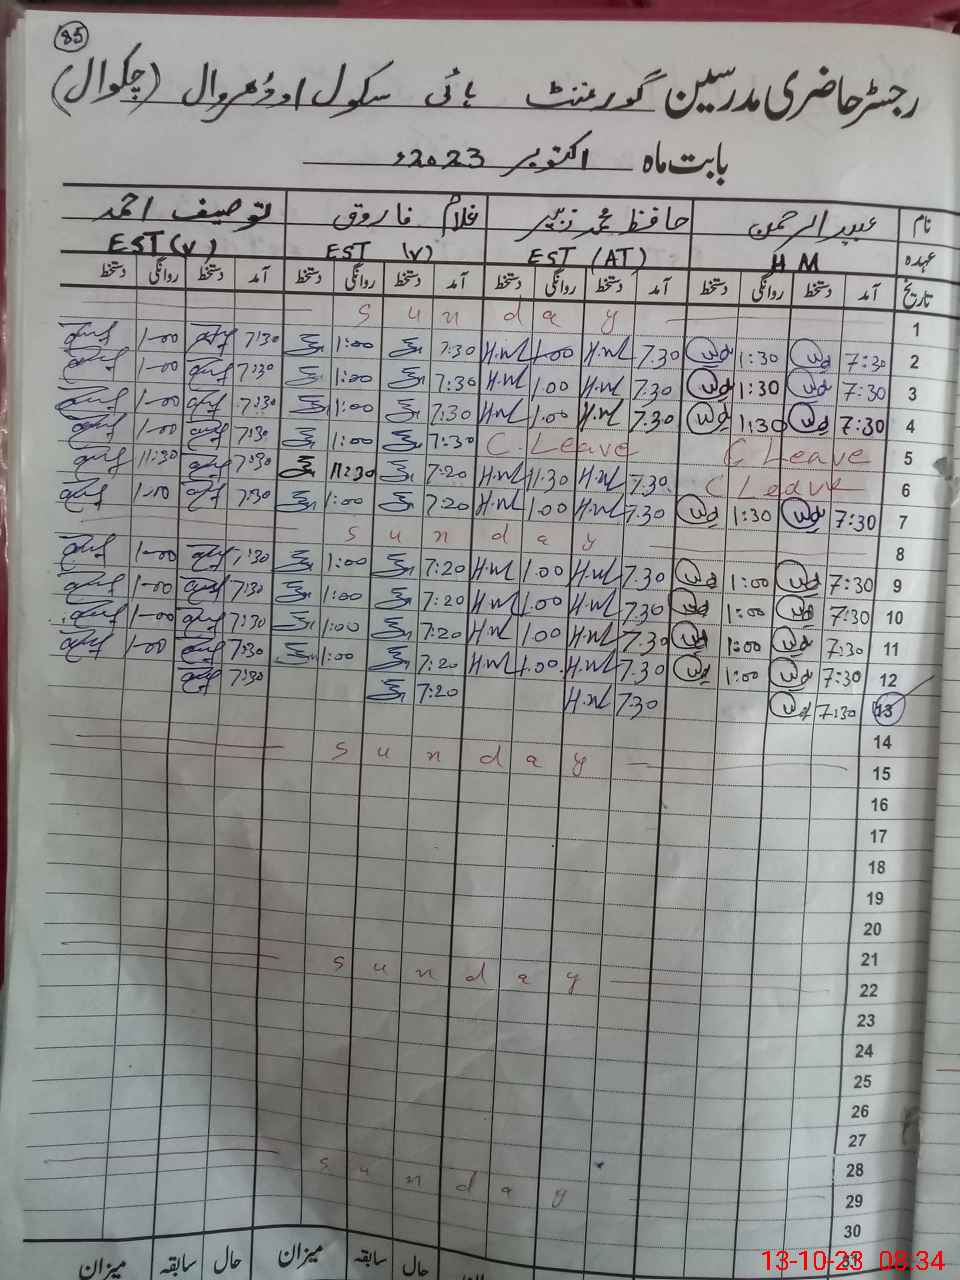 85
رجسٹر حاضری مدرسین گورنمنٹ ہائی سکول اوڈھروال (چکوال)
بابت ماہ اکتوبر 2023ء
نام عبید الرحمن حافظ محمد زبیر غلام فاروق توصیف احمد
عہدہ HM EST (AT) EST (V) EST (V)
تاریخ آمد دستخط روانگی دستخط آمد دستخط روانگی دستخط آمد دستخط روانگی دستخط آمد دستخط روانگی دستخط
1 Sunday
2 7:30 1:30 7.30 1.00 7:30 1:00 7:30 1-00
3 7:30 1:30 7.30 1.00 7:30 1:00 7:30 1-00
4 7:30 1:30 7.30 1.00 7:30 1:00 7:30 1-00
5 C Leave C. Leave 7:30 1:00 7:30 1-00
6 C Leave 7.30 11.30 7:20 11:30 7:30 11:30
7 7:30 1:30 7.30 1.00 7:20 1:00 7:30 1-00
8 Sunday
9 7:30 1:00 7.30 1.00 7:20 1:00 7:30 1-00
10 7:30 1:00 7.30 1.00 7:20 1:00 7:30 1-00
11 7:30 1:00 7.30 1.00 7:20 1:00 7:30 1-00
12 7:30 1:00 7.30 1.00 7:20 1:00 7:30 1-00
13 7:30 7.30 7:20 7:30
14
15 Sunday
16
17
18
19
20
21
22 Sunday
23
24
25
26
27
28
29 Sunday
30
31
حال سابقہ میزان حال سابقہ میزان
13-10-23 08:34